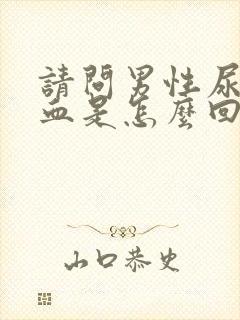 請問男性尿
血是怎麼回
山口恭史